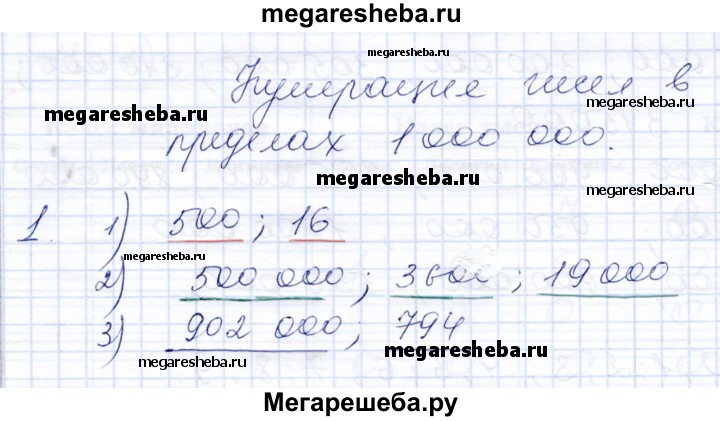 megaresheba.ru
megaresheba.ru
Нумерация чисел в
megaresheba.ru
megaresheba.ru
пределах 1 000 000.
megaresheba.ru
megaresheba.ru
1. 1) 500 ; 16
megaresheba.ru
megaresheba.ru
2) 500 000 ; 3600 ; 19 000
3) 902 000 ; 794
megaresheba.ru
megaresheba.ru
megaresheba.ru
Мегарешеба.ру